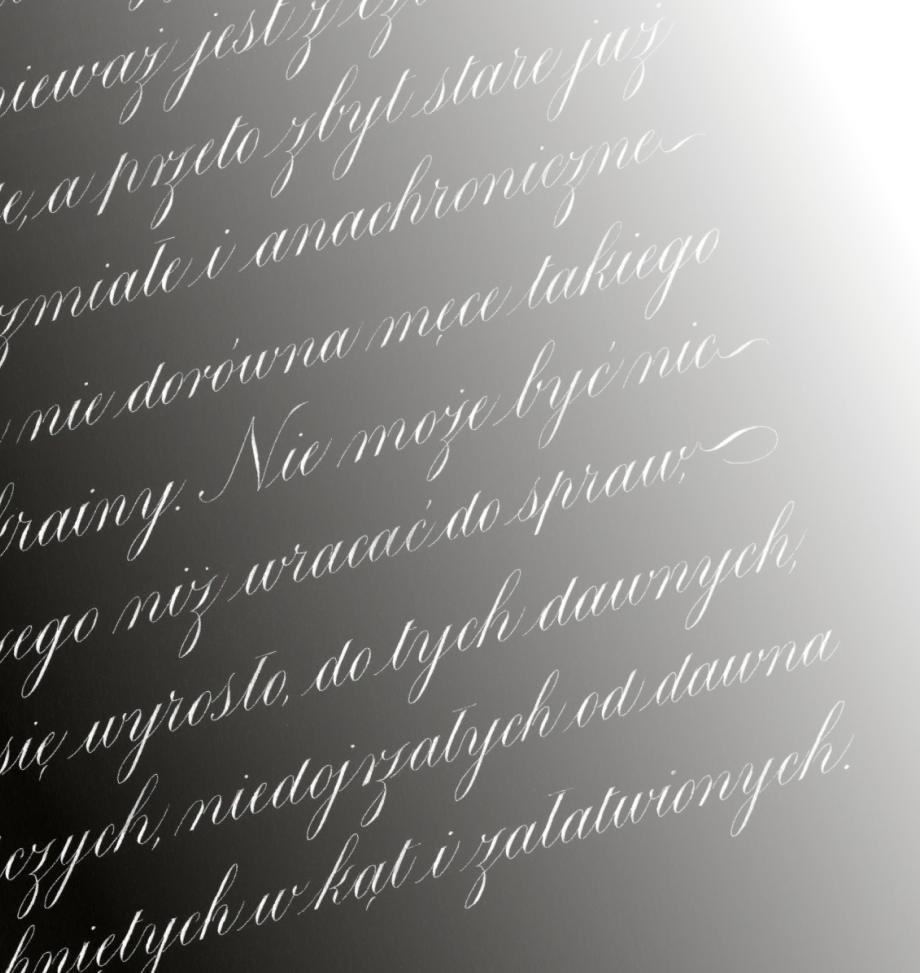 nieważ jest z
e, a przeto zbyt stare już
zmiałe i anachroniczne
nie dorówna męce takiego
krainy. Nie może być nic
szego niż wracać do spraw,
się wyrosło, do tych dawnych,
czych, niedojrzałych od dawna
hniętych w kąt i załatwionych.